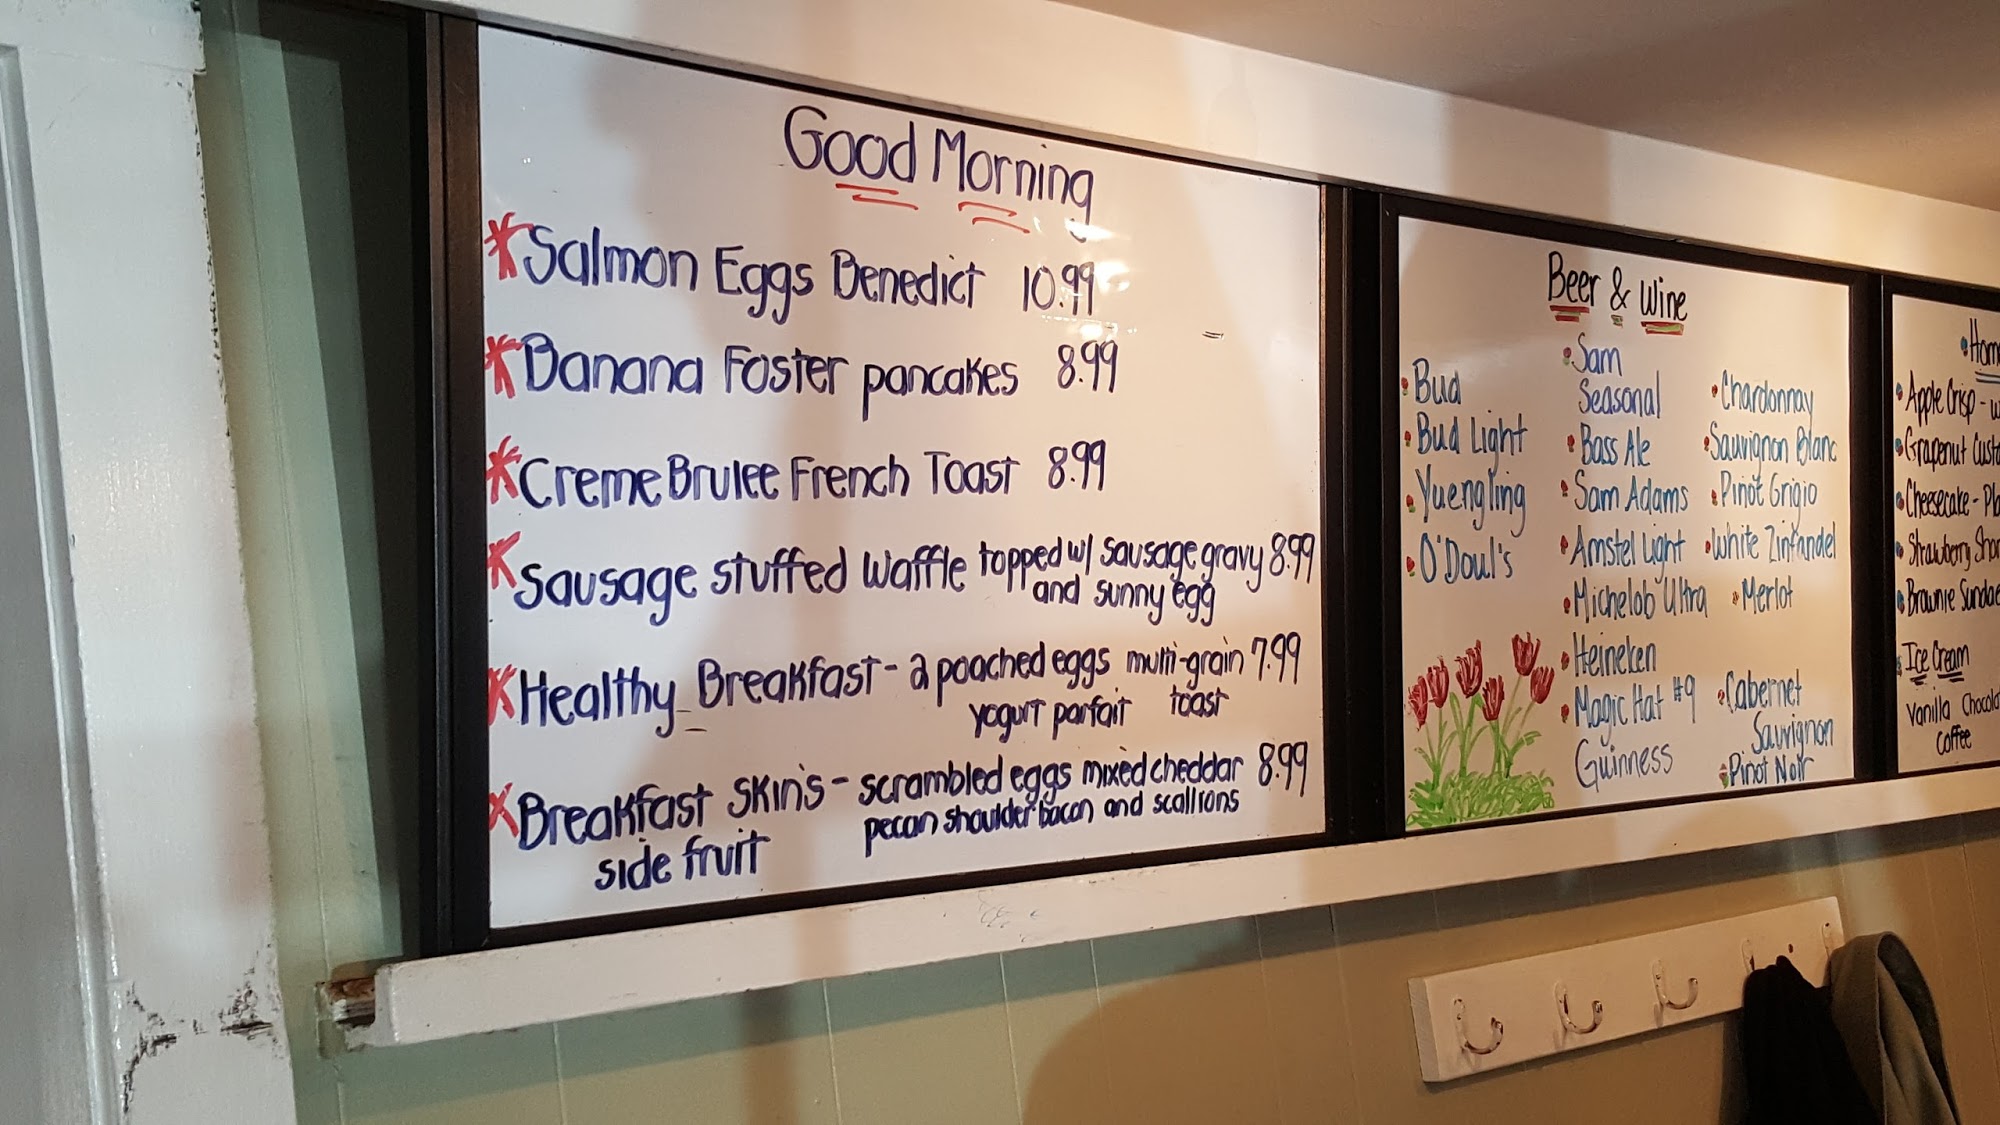 Good Morning
Salmon Eggs Benedict 10.99
Banana Foster pancakes 8.99
Creme Brulee French Toast 8.99
Sausage stuffed waffle topped w/ sausage gravy 8.99
and sunny egg
Healthy Breakfast - 2 poached eggs multi-grain 7.99
yogurt parfait toast
Breakfast Skin's - scrambled eggs mixed cheddar 8.99
pecan shoulder bacon and scallions
side fruit
Beer & Wine
Bud
Bud Light
Yuengling
O'Doul's
Sam
Seasonal
Bass Ale
Sam Adams
Amstel Light
Michelob Ultra
Heineken
Magic Hat #9
Guinness
Chardonnay
Sauvignon Blanc
Pinot Grigio
White Zinfandel
Merlot
Cabernet
Sauvignon
Pinot Noir
Apple Crisp -
Grapenut
Cheesecake -
Strawberry
Brownie
Ice Cream
Vanilla
Coffee